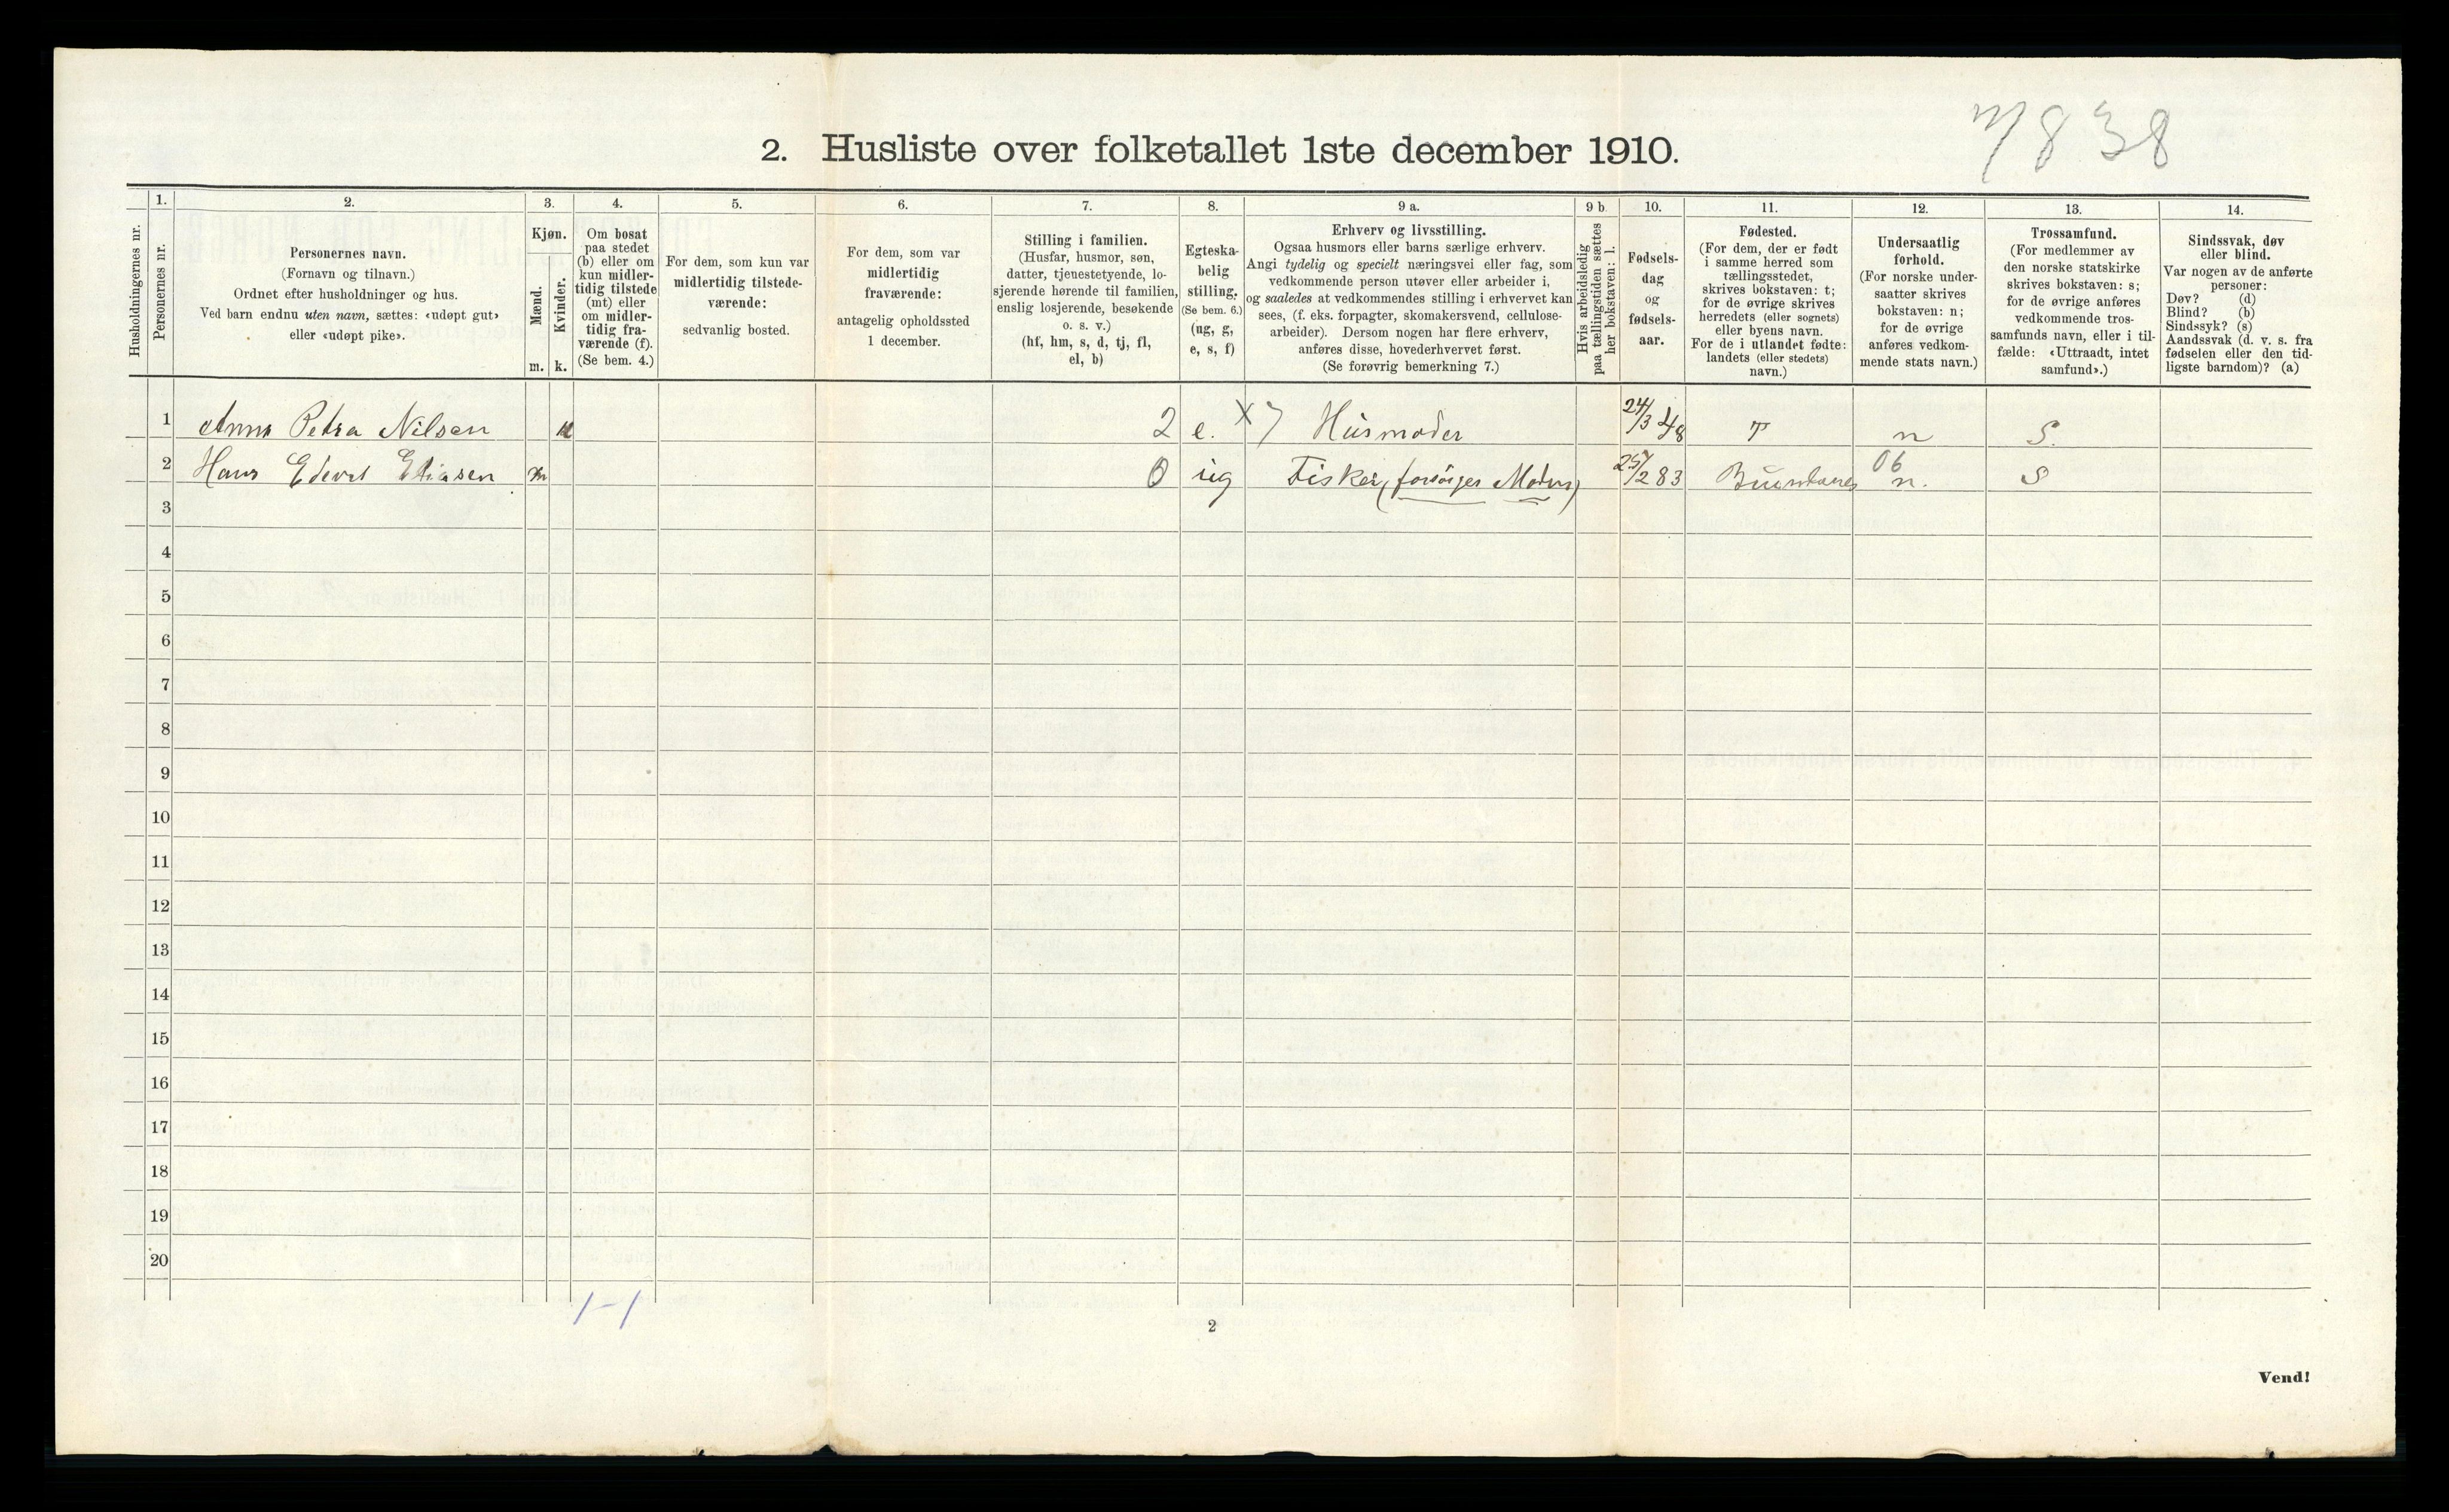 838
2. Husliste over folketallet 1ste december 1910.
Husholdningernes nr.
1.
Personernes nr.
2.
Personernes navn.
(Fornavn og tilnavn.)
Ordnet efter husholdninger og hus.
Ved barn endnu uten navn, sættes: «udøpt gut»
eller «udøpt pike».
3.
Kjøn.
Mænd.
Kvinder.
m. k.
4.
Om bosat
paa stedet
(b) eller om
kun midler-
tidig tilstede
(mt) eller
om midler-
tidig fra-
værende (f).
(Se bem. 4.)
5.
For dem, som kun var
midlertidig tilstede-
værende:
sedvanlig bosted.
6.
For dem, som var
midlertidig
fraværende:
antagelig opholdssted
1 december.
7.
Stilling i familien.
(Husfar, husmor, søn,
datter, tjenestetyende, lo-
sjerende hørende til familien,
enslig losjerende, besøkende
o. s. v.)
(hf, hm, s, d, tj, fl,
el, b)
8.
Egteska-
belig
stilling.
(Se bem. 6.)
(ug, g,
e, s, f)
9 a.
Erhverv og livsstilling.
Ogsaa husmors eller barns særlige erhverv.
Angi tydelig og specielt næringsvei eller fag, som
vedkommende person utøver eller arbeider i,
og saaledes at vedkommendes stilling i erhvervet kan
sees, (f. eks. forpagter, skomakersvend, cellulose-
arbeider). Dersom nogen har flere erhverv,
anføres disse, hovederhvervet først.
(Se forøvrig bemerkning 7.)
9 b
Hvis arbeidsledig
paa tællingstiden sættes
her bokstaven: l.
10.
Fødsels-
dag
og
fødsels-
aar.
11.
Fødested.
(For dem, der er født
i samme herred som
tællingsstedet,
skrives bokstaven: t;
for de øvrige skrives
herredets (eller sognets)
eller byens navn.
For de i utlandet fødte:
landets (eller stedets)
navn.)
12.
Undersaatlig
forhold.
(For norske under-
saatter skrives
bokstaven: n;
for de øvrige
anføres vedkom-
mende stats navn.)
13.
Trossamfund.
(For medlemmer av
den norske statskirke
skrives bokstaven: s;
for de øvrige anføres
vedkommende tros-
samfunds navn, eller i til-
fælde: «Uttraadt, intet
samfund».)
14.
Sindssvak, døv
eller blind.
Var nogen av de anførte
personer:
Døv? (d)
Blind? (b)
Sindssyk? (s)
Aandssvak (d. v. s. fra
fødselen eller den tid-
ligste barndom)? (a)
1 Anna Petra Nilsen k 2 e. X 7 Husmoder 24/3 48 T n S.
2 Hans Edevrt Eliasen m 0 ug Fisker, (forsörger Modern) 25/2 83 06 n. S
3
4
5
6
7
8
9
10
11
12
13
14
15
16
17
18
19
20
1-1
2
Vend!